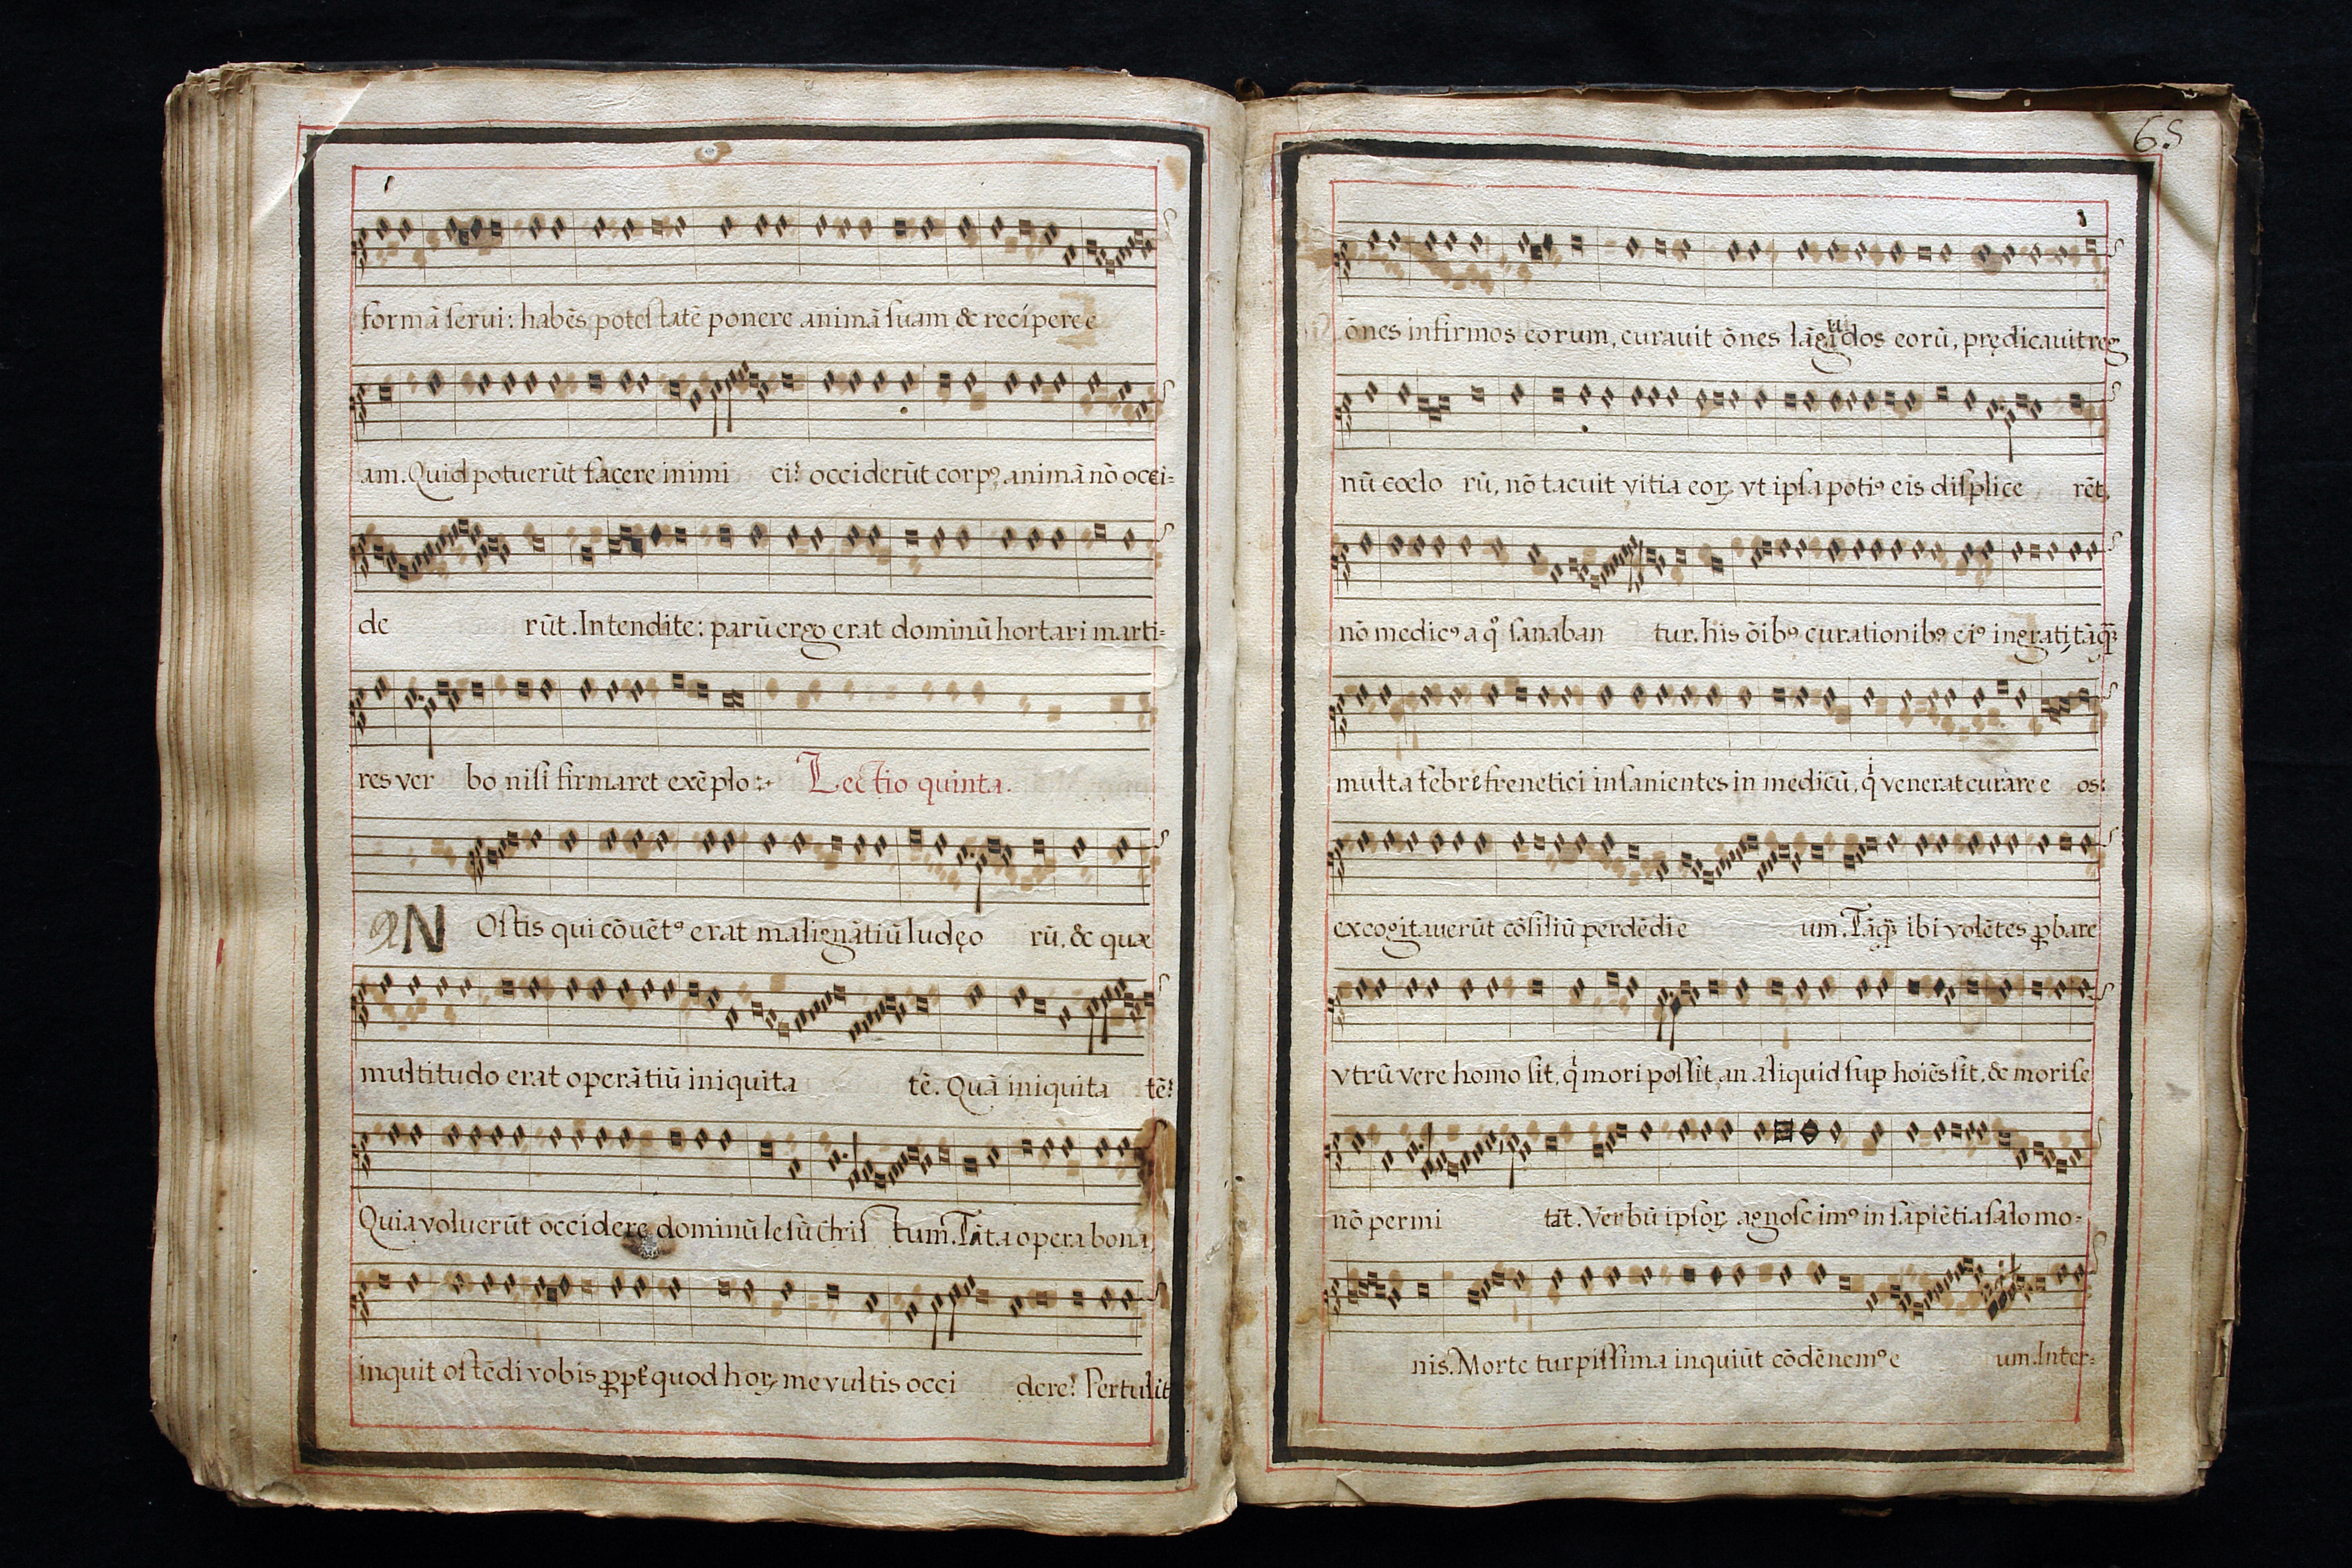 formā serui: habēs potestatē ponere animā suam & recípere e
am. Quid potuerūt facere inimi ci? occiderūt corpꝰ, animā nō occi-
de rūt. Intendite: parū ergo erat dominū hortari marti-
res ver bo nisi firmaret exēplo :~ Lectio quinta.
N Ostis qui cōuētꝰ erat malignātiū Iudęo rū, & quæ
multitudo erat operātiū iniquita tē. Quā iniquita tē?
Quia voluerūt occidere dominū Iesū Chris tum. Tāta opera bona,
inquit ostēdi vobis ꝓpt quod hoꝝ me vultis occi dere? Pertulit
65
ōnes infirmos eorum, curauit ōnes lāguidos eorū, prędicauit reg
nū coelo rū, nō tacuit vitia eoꝝ vt ipsa potiꝰ eis displice rēt,
nō medicꝰ a qͦ sanaban tur. his ōibꝰ curationibꝰ eiꝰ ingrati, tāqꝫ
multa febre frenetici insanientes in medicū, qͥ venerat curare e os:
excogitauerūt cōsiliū perdēdi e um. Tāqꝫ ibi volētes ꝓbare
vtrū vere homo sit, qͥ mori possit, an aliquid suꝑ hoiēs sit, & mori se
nō permi tāt. Verbū ipsoꝝ agnoscimꝰ in sapiētia salomo-
nis. Morte turpissima inquiūt cōdēnemꝰ e um. Inter-